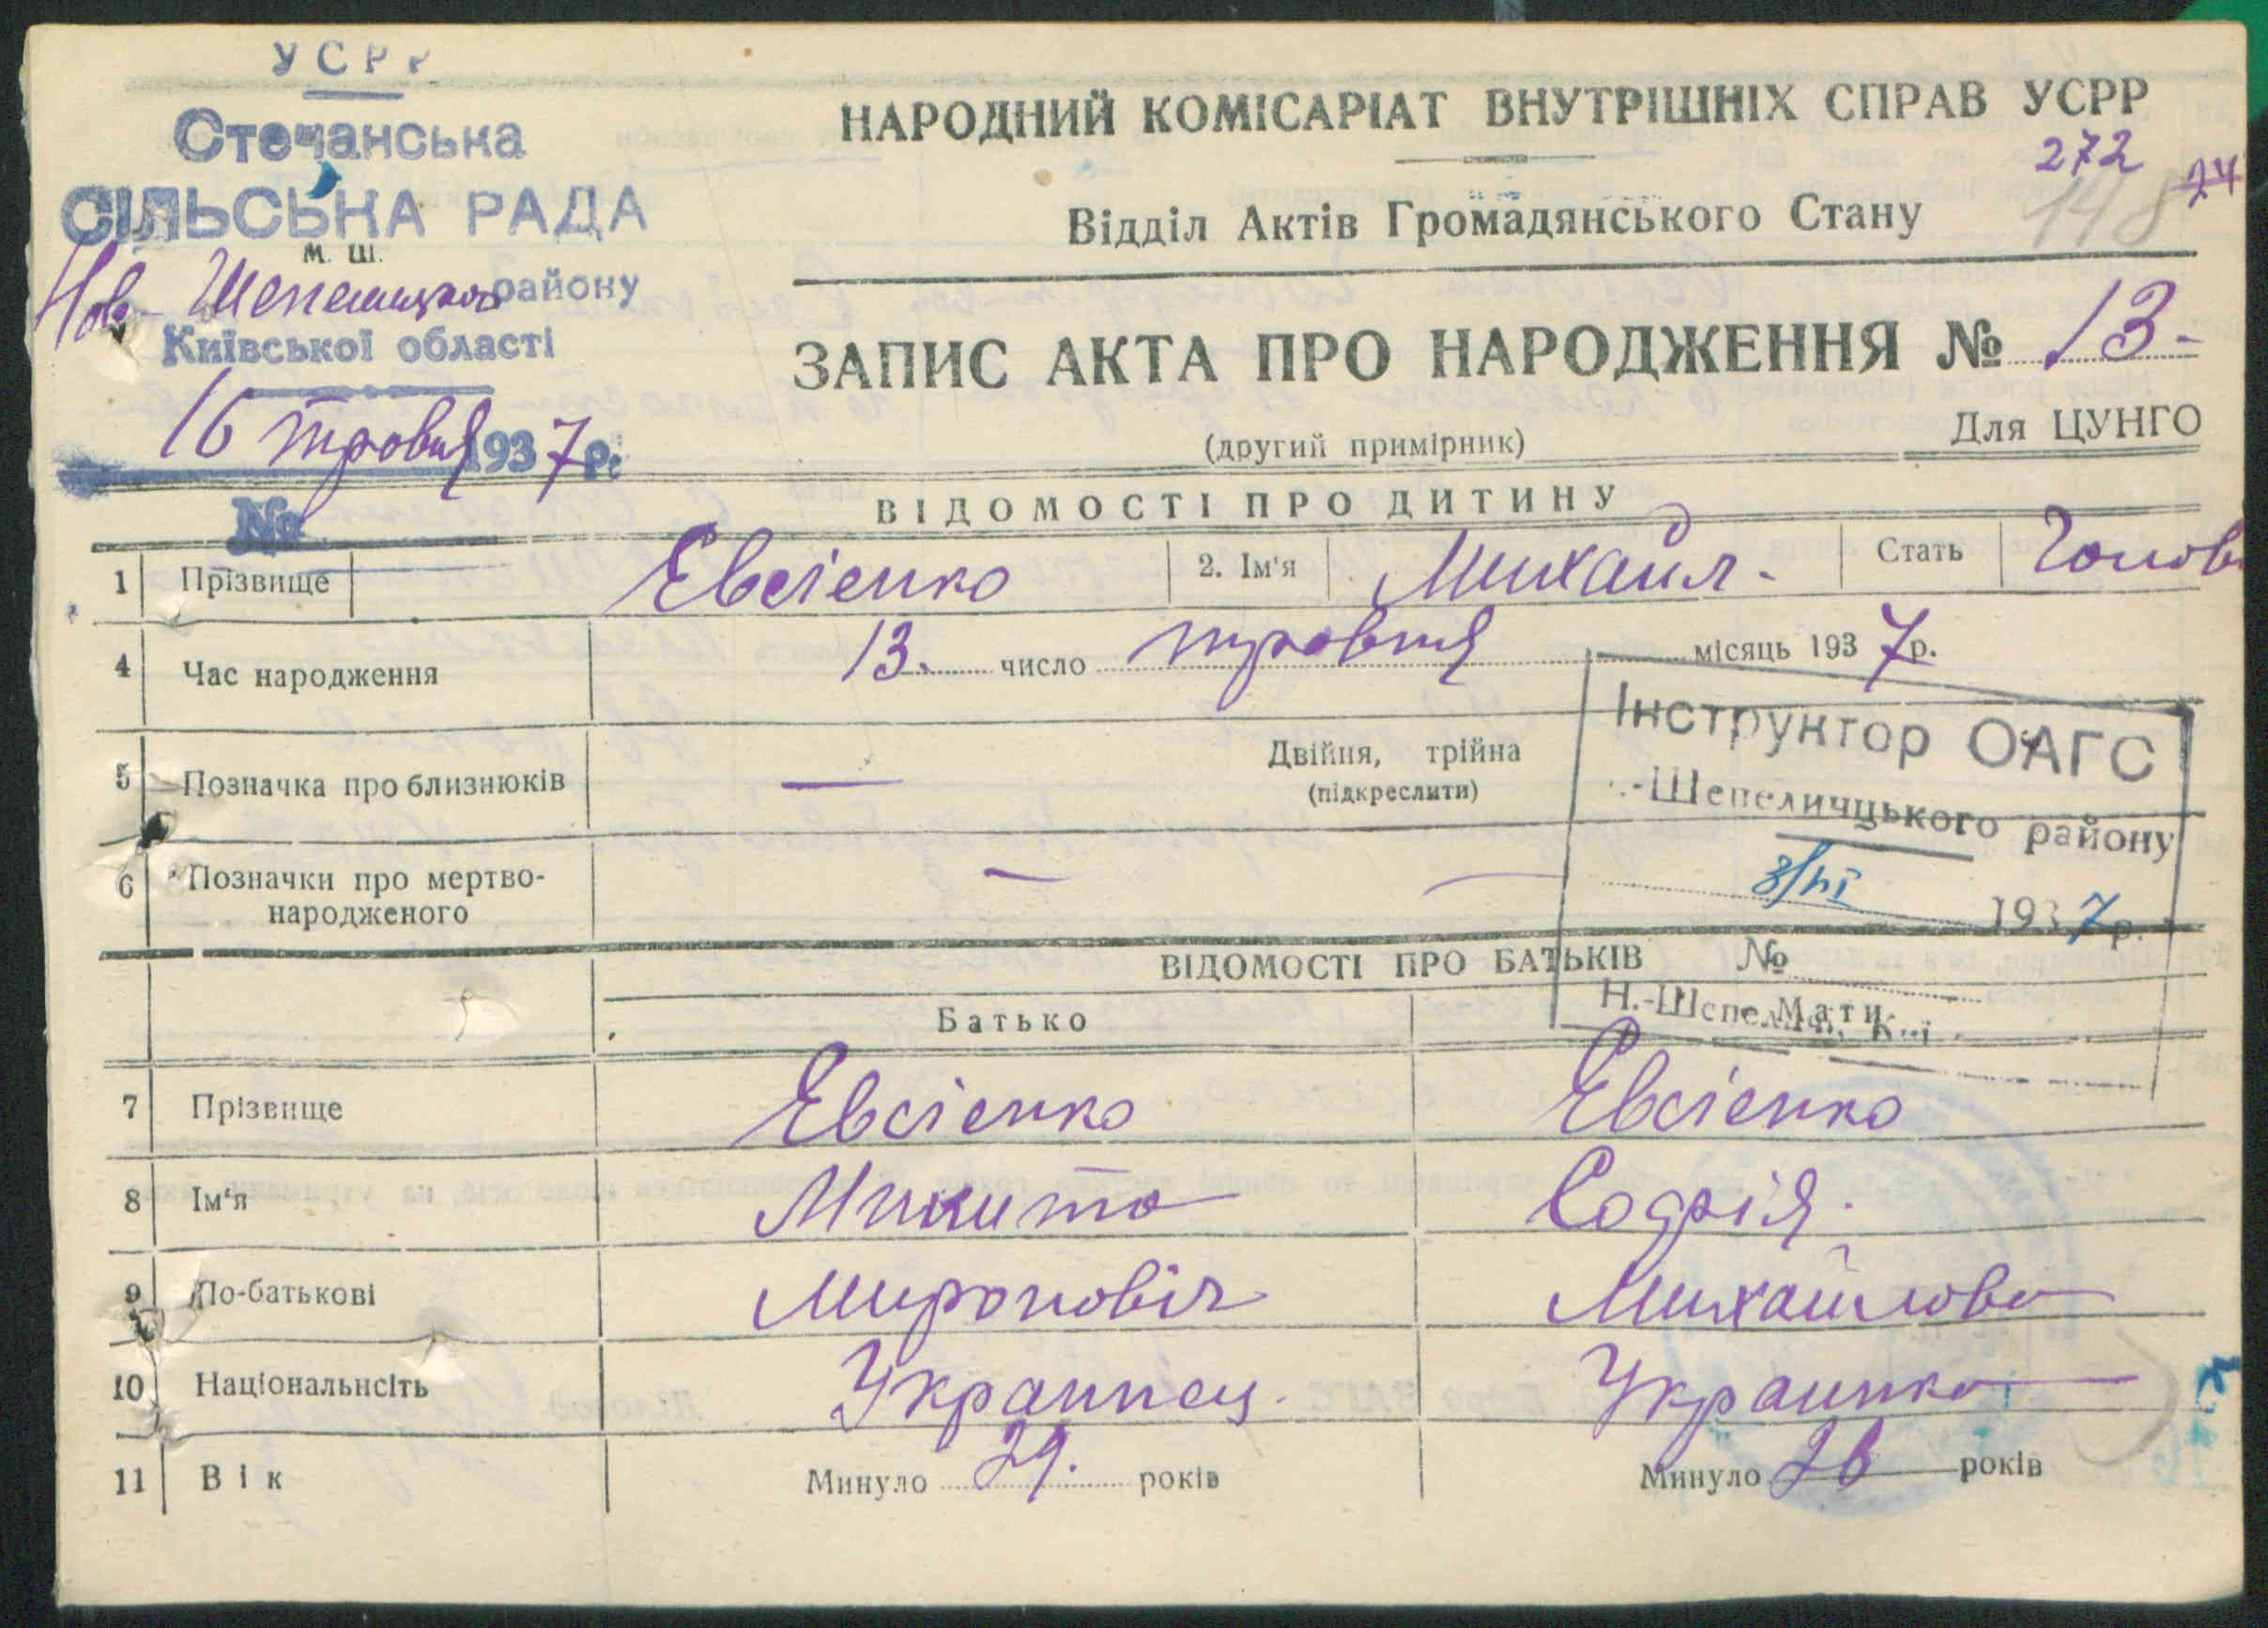 УСРР
Стечанська
СІЛЬСЬКА РАДА
М. Ш.
Нов-Шепелицького району
Київської області
16 травня 1937 р.
№
НАРОДНИЙ КОМІСАРІАТ ВНУТРІШНІХ СПРАВ УСРР
272
24
148
Відділ Актів Громадянського Стану
ЗАПИС АКТА ПРО НАРОДЖЕННЯ № 13-
(другий примірник)
Для ЦУНГО
ВІДОМОСТІ ПРО ДИТИНУ
1 Прізвище Евсіенко 2. Ім'я Михаил- Стать Чолов
4 Час народження 13. число травня місяць 1937 р.
5 Позначка про близнюків — Двійня, трійна
(підкреслити)
Інструктор ОАГС
.-Шепеличцького району
8/VI 1937 р.
№
Н.-Шепеличі,
6 Позначки про мертво-
народженого — —
ВІДОМОСТІ ПРО БАТЬКІВ
Батько Мати
7 Прізвище Евсіенко Евсіенко
8 Ім'я Микита Софія.
9 По-батькові Миронович Михайловна
10 Національнсіть Украинец. Украинка
11 Вік Минуло 29. років Минуло 26 років